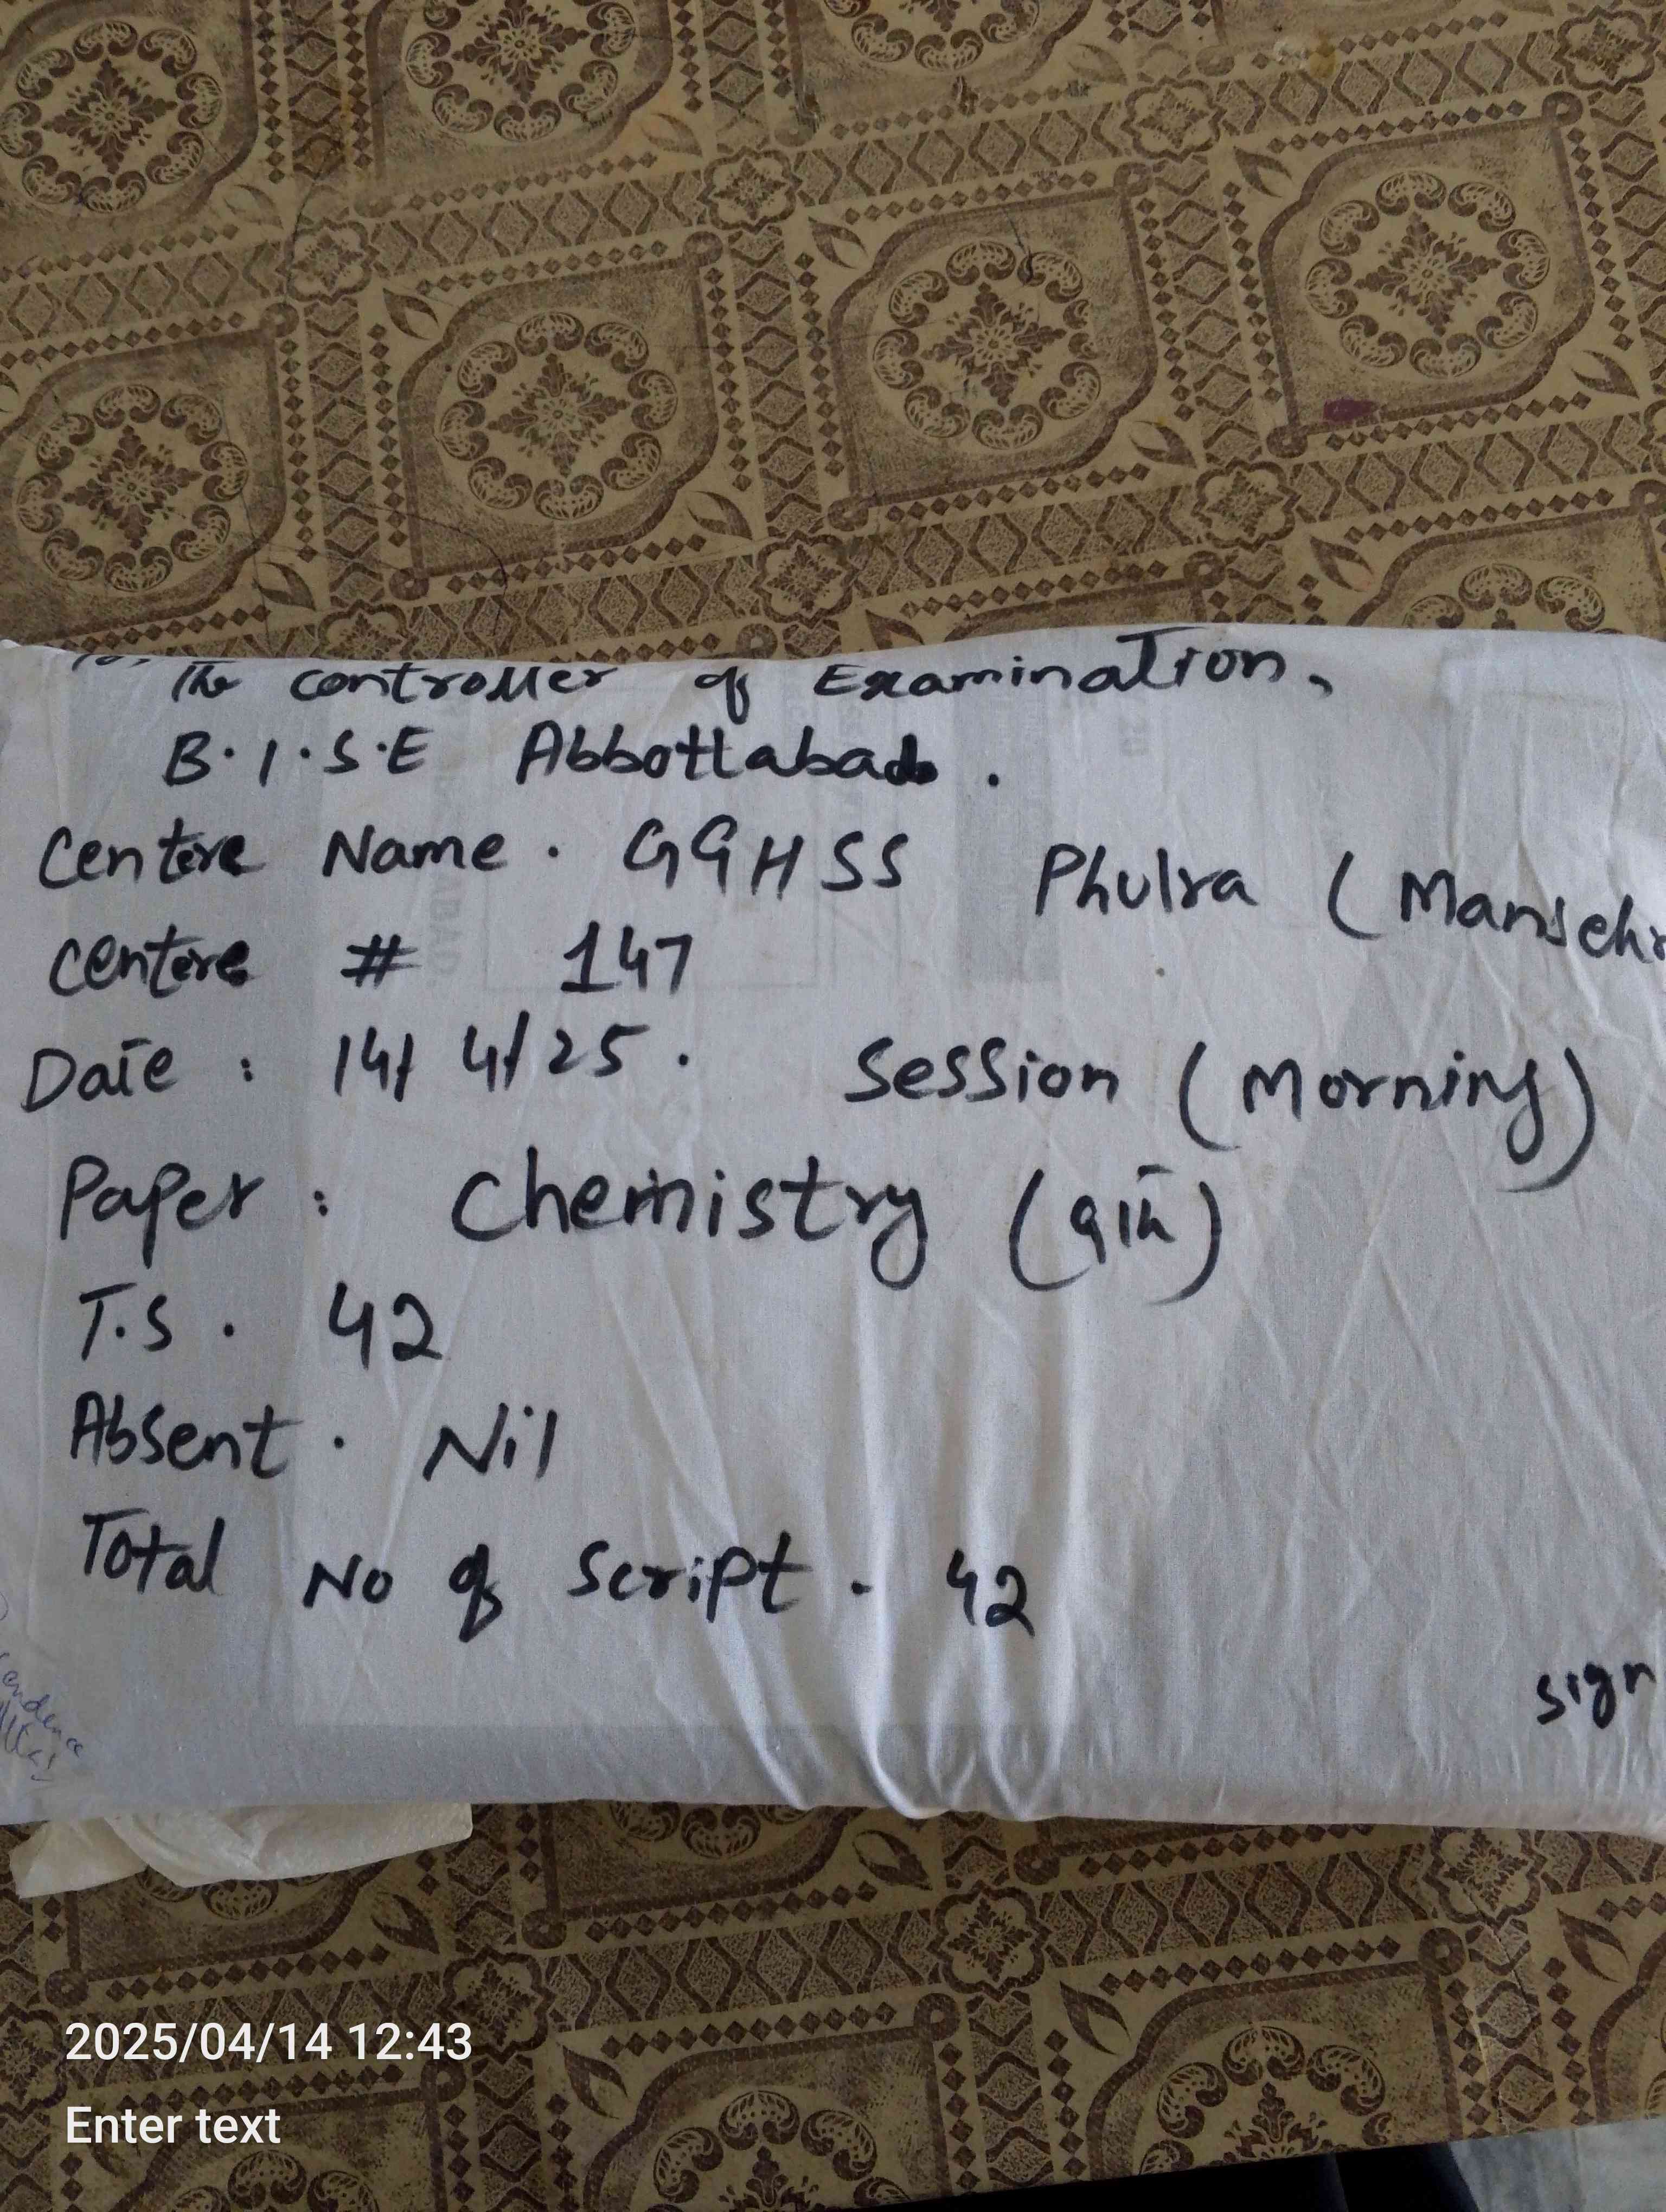 To,
The Controller of Examination,
B.I.S.E Abbottabad.
Centre Name. GGHSS Phulra (Mansehr
Centre # 147
Date: 14/4/25. Session (Morning)
Paper: Chemistry (9th)
T.S. 42
Absent. Nil
Total No of Script. 42
Sign
2025/04/14 12:43
Enter text